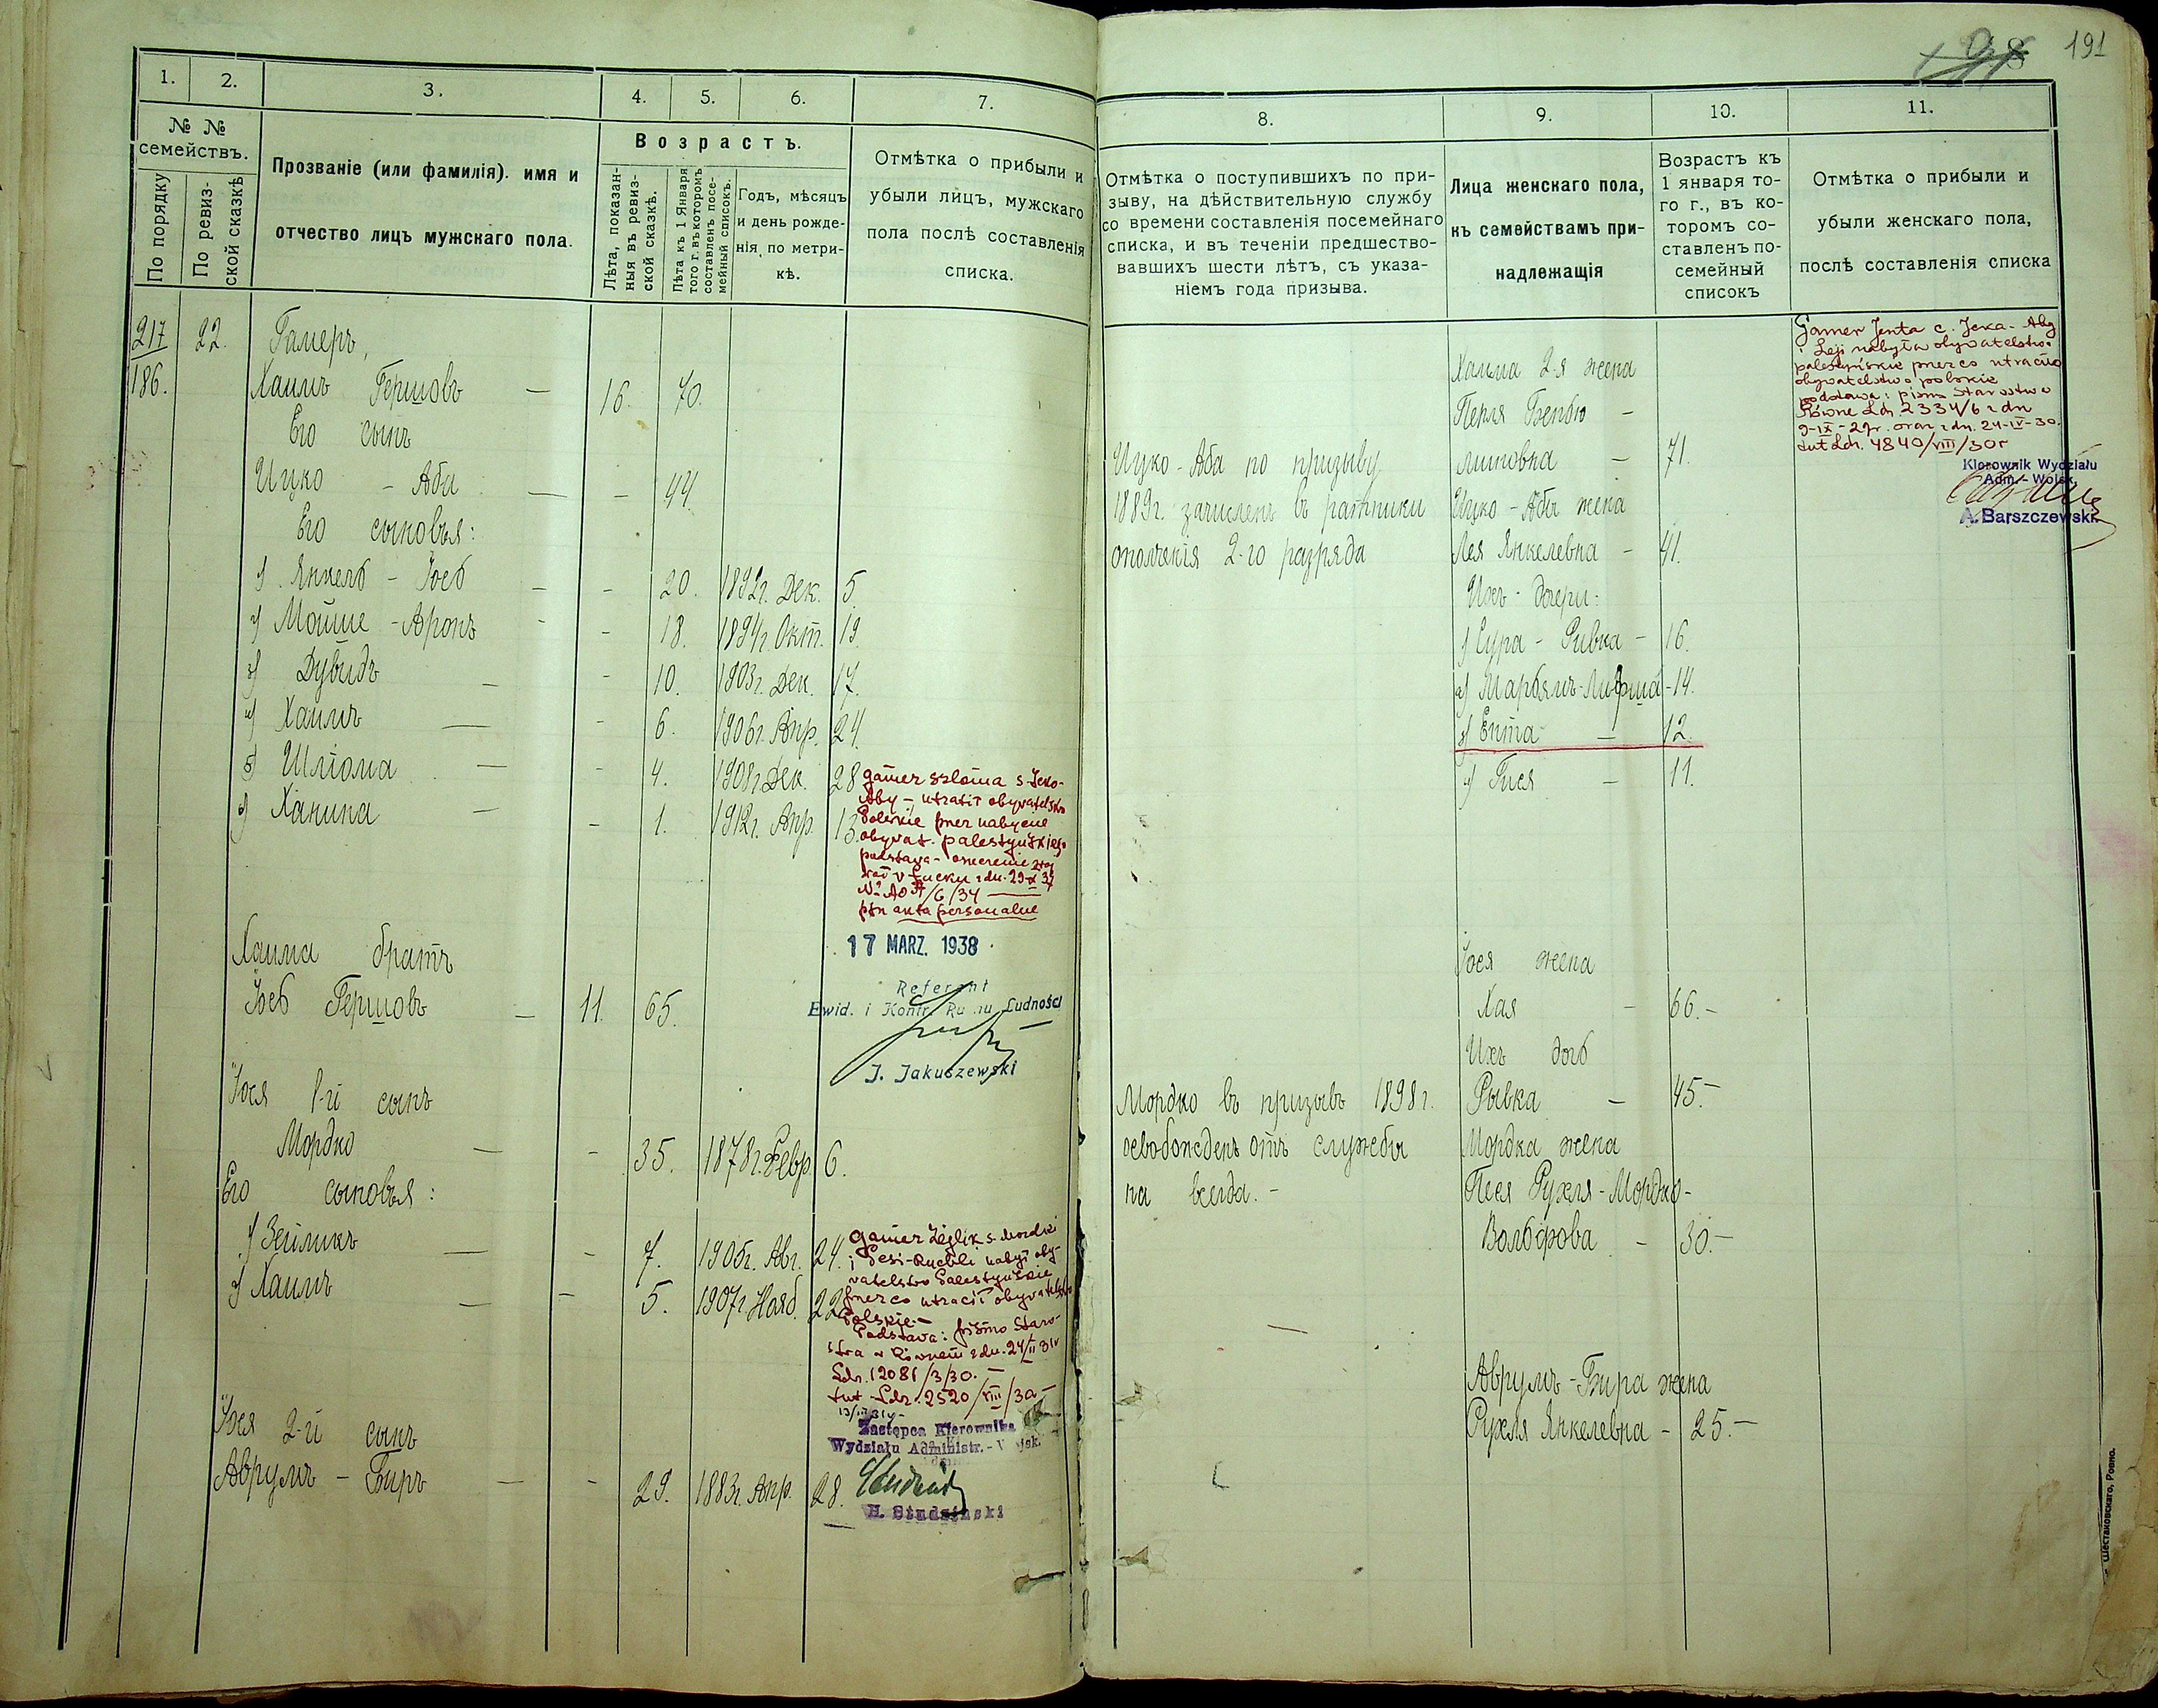 191
1. 2. 3. 4. 5. 6. 7.
№ №
семействъ.
По порядку
По ревиз-
ской сказкѣ
Прозваніе (или фамилія). имя и
отчество лицъ мужскаго пола.
Возрастъ.
Лѣта, показан-
ныя въ ревиз-
ской сказкѣ.
Лѣта къ 1 Января
того г. въ которомъ
составленъ посе-
мейный списокъ.
Годъ, мѣсяцъ
и день рожде-
нія по метри-
кѣ.
Отмѣтка о прибыли и
убыли лицъ, мужскаго
пола послѣ составленія
списка.
217 22. Гамеръ,
186. Хаимъ Гершовъ — 16. 70.
Его сынъ
Ицко - Аба — — 44.
Его сыновья:
1) Янкель - Іось - - 20. 1892г. Дек. 5.
2) Мойше - Аронъ - - 18. 1894г. Окт. 19.
3) Дувидъ — - 10. 1903г. Дек. 17.
4) Хаимъ — - 6. 1906г. Апр. 24.
5) Шліома — - 4. 1908г. Дек. 28
6) Ханина — - 1. 1912г. Апр. 13.
Gamer Szloma s. Icko-
Aby — utracił obywatelstwo
Polskie przez nabycie
obywat. palestyńskiego
podstawa - orzeczenie
w Łucku z dn. 29-X 37
№ AO /6/34 —
ptrz akta personalne
17 MARZ. 1938
Referent
Ewid. i Kontr. Ruchu Ludności
J. Jakuszewski
Хаима братъ
Іось Гершовъ — 11. 65.
Іося 1-й сынъ
Мордко — - 35. 1878г. Февр. 6.
Его сыновья:
1) Зейликъ — - 7. 1905г. Авг. 24.
2) Хаимъ — - 5. 1907г. Нояб. 22
Gamer Zejlik s. Mordki
i Pesi-Ruchli nabył oby-
watelstwo Palestyńskie
przez co utracił obywatelstwo
Polskie.—
Podstawa: pismo Staro-
stwa w Równem z dn. 24/II 31r
Ldz. 12081/3/30. —
tut. Ldz. 2520/VIII/30 —
Zastępca Kierownika
Wydziału Administr.-Wojsk.
H. Studziński
Іося 2-й сынъ
Аврумъ - Биръ — - 29. 1883г. Апр. 28.
8. 9. 10. 11.
Отмѣтка о поступившихъ по при-
зыву, на дѣйствительную службу
со времени составленія посемейнаго
списка, и въ теченіи предшество-
вавшихъ шести лѣтъ, съ указа-
ніемъ года призыва.
Лица женскаго пола,
къ семействамъ при-
надлежащія
Возрастъ къ
1 января то-
го г., въ ко-
торомъ со-
ставленъ по-
семейный
списокъ
Отмѣтка о прибыли и
убыли женскаго пола,
послѣ составленія списка
Ицко - Аба по призыву
1889г. зачисленъ въ ратники
ополченія 2-го разряда
Хаима 2-я жена
Перля Бенью -
миновна — 71.
Ицко - Абы жена
Лея Янкелевна — 41.
Ихъ дочери:
1) Сура - Ривка — 16.
2) Марьямъ-Лифша - 14.
3) Ента — 12.
4) Гися — 11.
Gamer Jenta c. Icka - Aby
i Leji nabyła obywatelstwo
palestyńskie przez co utraciła
obywatelstwo polskie
podstawa: pismo Starostwa
Równe Ldz. 2334/6 z dn
9-IX-29r. oraz z dn. 24-IV-30.
tut Ldz. 4840/VIII/30r
Kierownik Wydziału
Adm.-Wojsk.
A. Barszczewski
Іося жена
Хая — 66.—
Ихъ дочь
Рывка — 45.—
Мордко въ призывъ 1898г.
освобожденъ отъ службы
на всегда. —
Мордка жена
Песя Рухля - Мордко-
Вольфова — 30.—
Аврумъ - Бира жена
Рухля Янкелевна — 25.—
Шестаковскаго, Ровно.